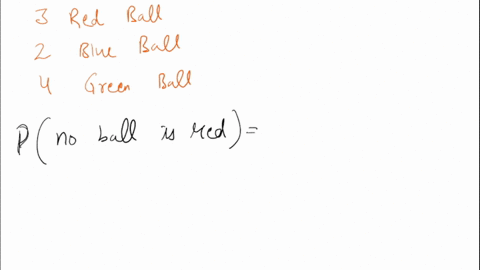 3 Red Ball
2 Blue Ball
4 Green Ball
P(no ball is red)=